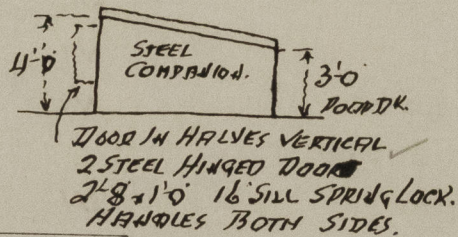 STEEL
COMPANION.
4'-0"
3'-0"
DOOR IN HALVES VERTICAL
2 STEEL HINGED DOORS
16" SILL SPRING LOCK.
HANDLES BOTH SIDES.